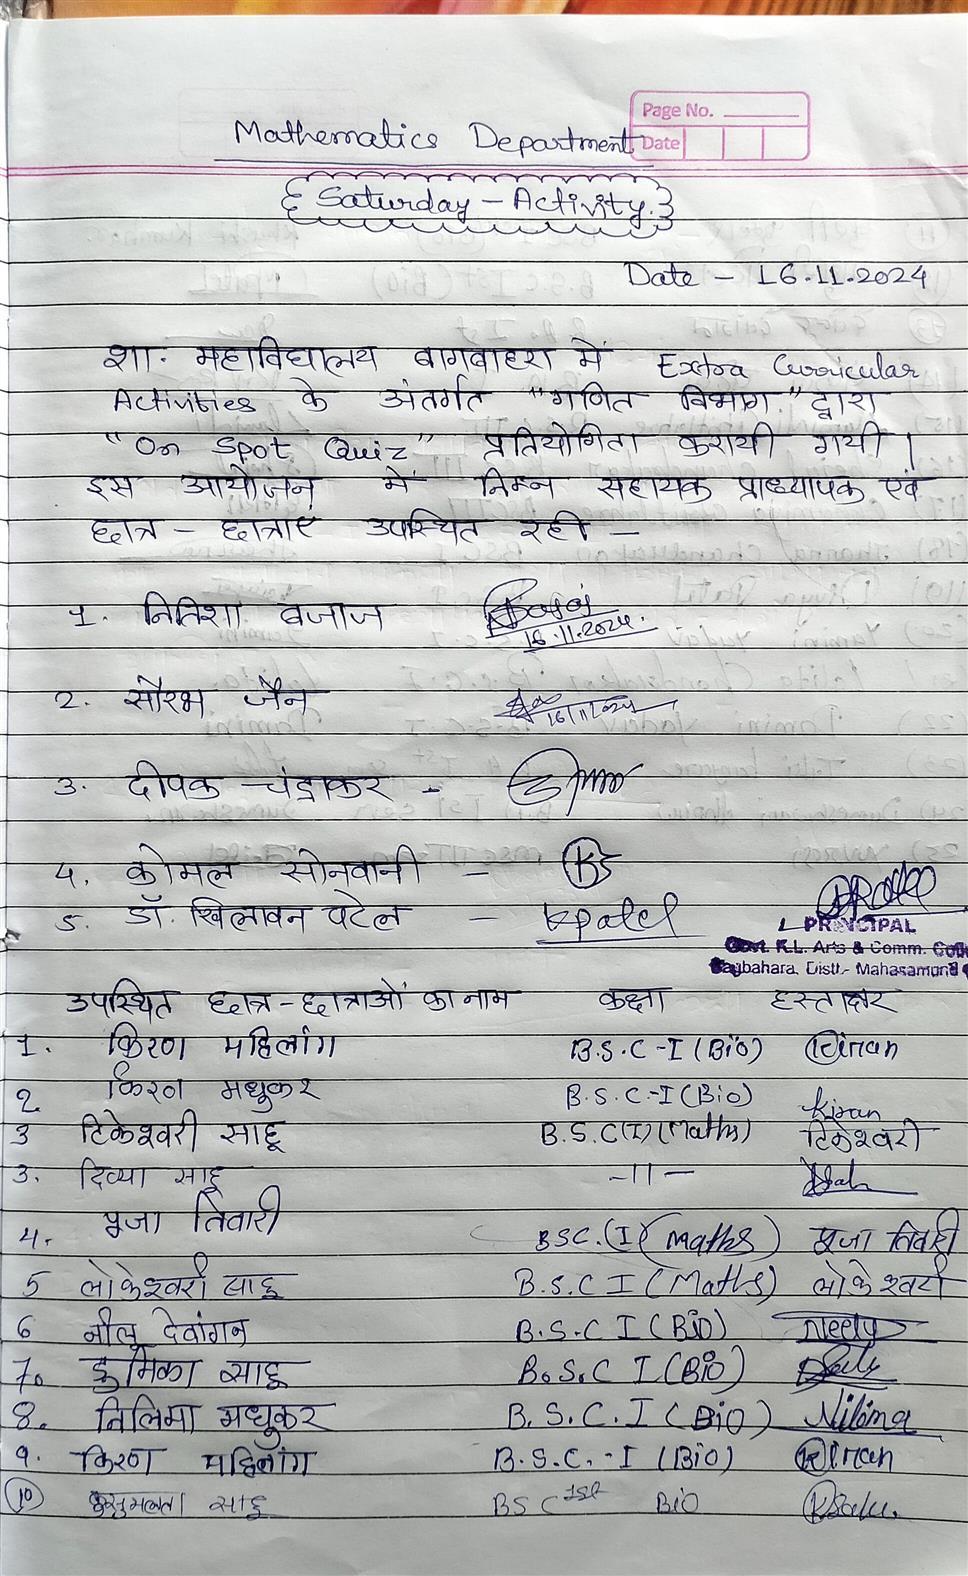 Page No.
Mathematics Department
Date
Saturday - Activity.
Date - 16.11.2024
शा. महाविद्यालय बागबाहरा में Extra Curricular
Activities के अंतर्गत "गणित विभाग" द्वारा
"On Spot Quiz" प्रतियोगिता करायी गयी।
इस आयोजन में निम्न सहायक प्राध्यापक एवं
छात्र - छात्राएं उपस्थित रही -
1. नितिशा बजाज
16.11.2024.
2. सौरभ जैन 16/11/2024
3. दीपक चंद्राकर -
4. कोमल सोनवानी - KS
5. डॉ. खिलावन पटेल - kpatel
PRINCIPAL
Govt. K.L. Arts & Comm. Coll
Bagbahara, Distt.- Mahasamund
उपस्थित छात्र-छात्राओं का नाम कक्षा हस्ताक्षर
1. किरण महिलांग B.S.C-I (Bio) Kiran
2. किरण मधुकर B.S.C.-I (Bio) Kiran
3 टिकेश्वरी साहू B.S.C(I) (Maths) टिकेश्वरी
3. दिव्या साहू -11-
4. पूजा तिवारी BSC.(I) (Maths) पूजा तिवारी
5 लोकेश्वरी साहू B.S.C I (Maths) लोकेश्वरी
6 नीलू देवांगन B.S.C I (Bio) Neelu
7. डुमिका साहू B.S.C I (Bio)
8. निलिमा मधुकर B.S.C.I (Bio) Nilima
9. किरण महिलांग B.S.C.-I (Bio) Kiran
10 कुसुमलता साहू BSC 1st Bio KSahu.